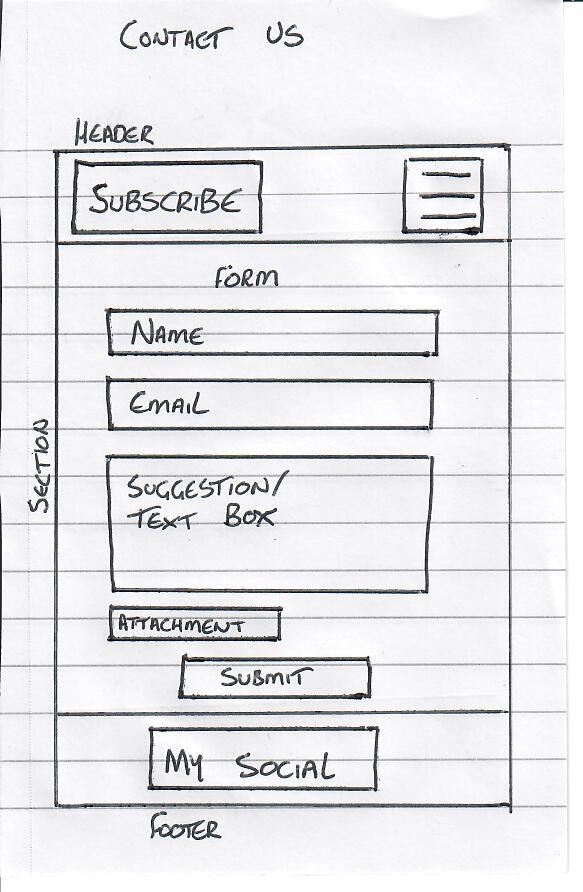 CONTACT US
HEADER
SUBSCRIBE
FORM
NAME
EMAIL
SECTION
SUGGESTION/
TEXT BOX
ATTACHMENT
SUBMIT
MY SOCIAL
FOOTER